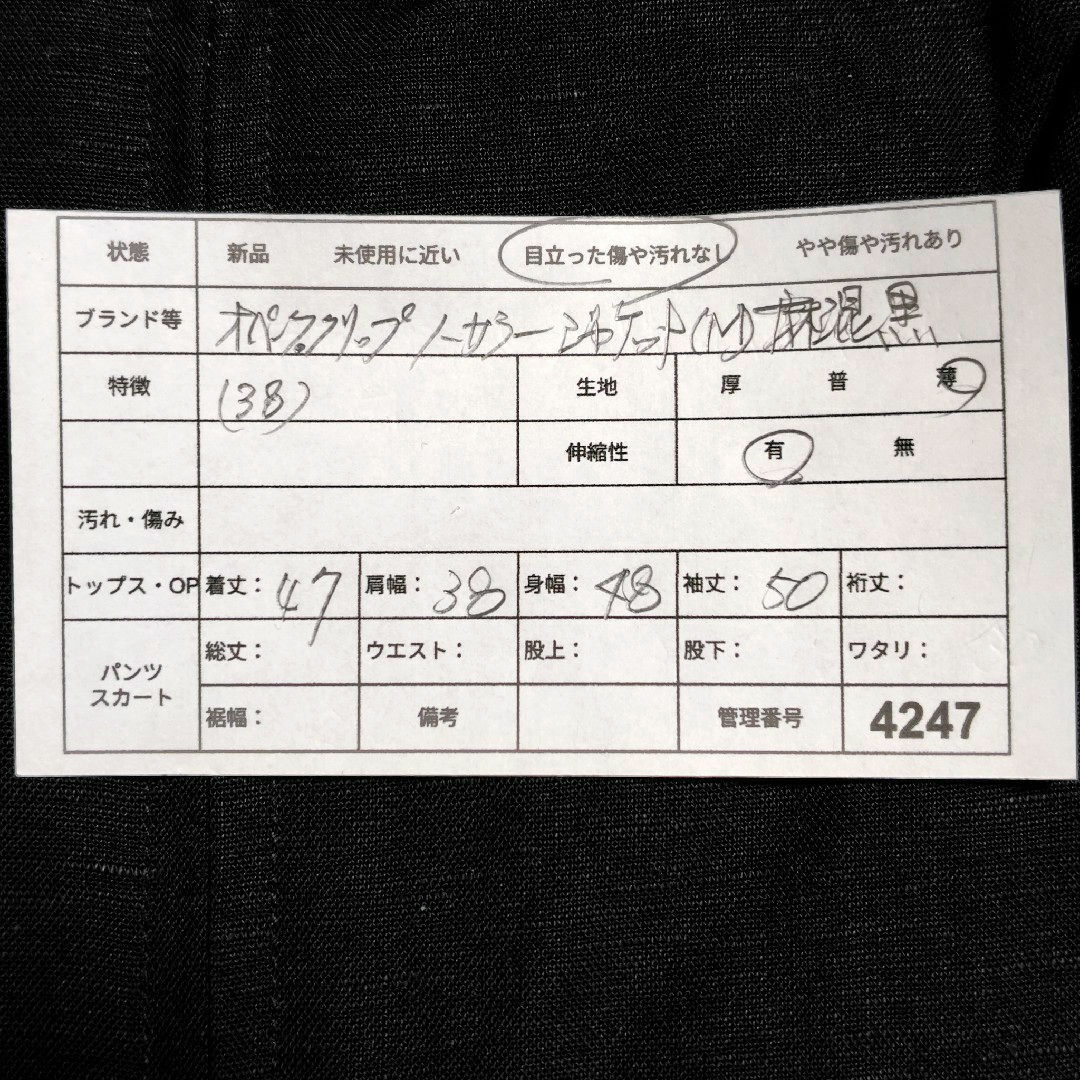 状態 新品 未使用に近い 目立った傷や汚れなし やや傷や汚れあり
ブランド等 オペークドットクリップ ノーカラージャケット(M)麻混黒
特徴 (38) 生地 厚 普 薄
伸縮性 有 無
汚れ・傷み
トップス・OP 着丈: 47 肩幅: 38 身幅: 48 袖丈: 50 裄丈:
パンツ 総丈: ウエスト: 股上: 股下: ワタリ:
スカート
裾幅: 備考 管理番号 4247